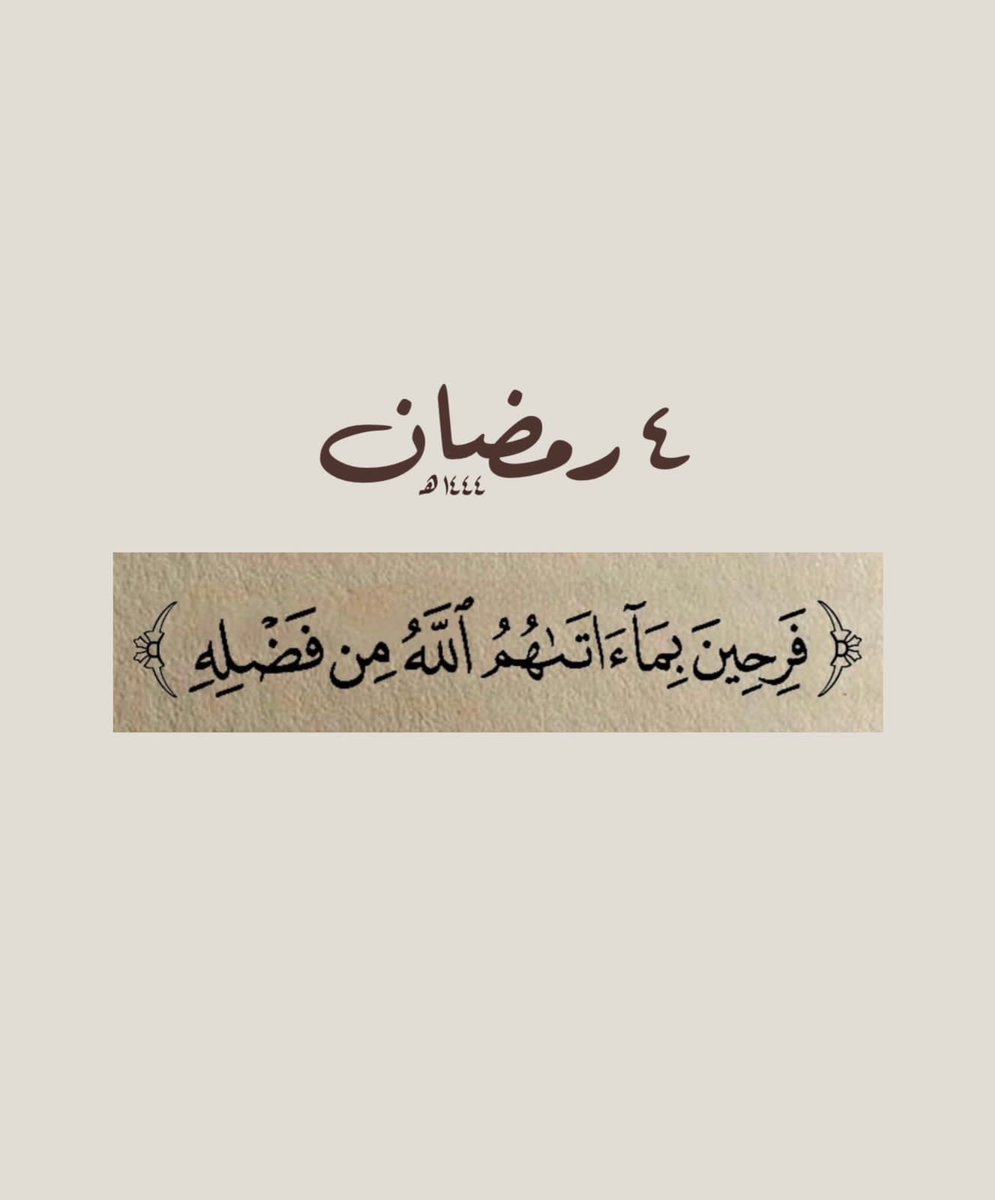 ٤ رمضان
١٤٤٤ هـ
﴿ فَرِحِينَ بِمَآ ءَاتَىٰهُمُ ٱللَّهُ مِن فَضْلِهِ ﴾